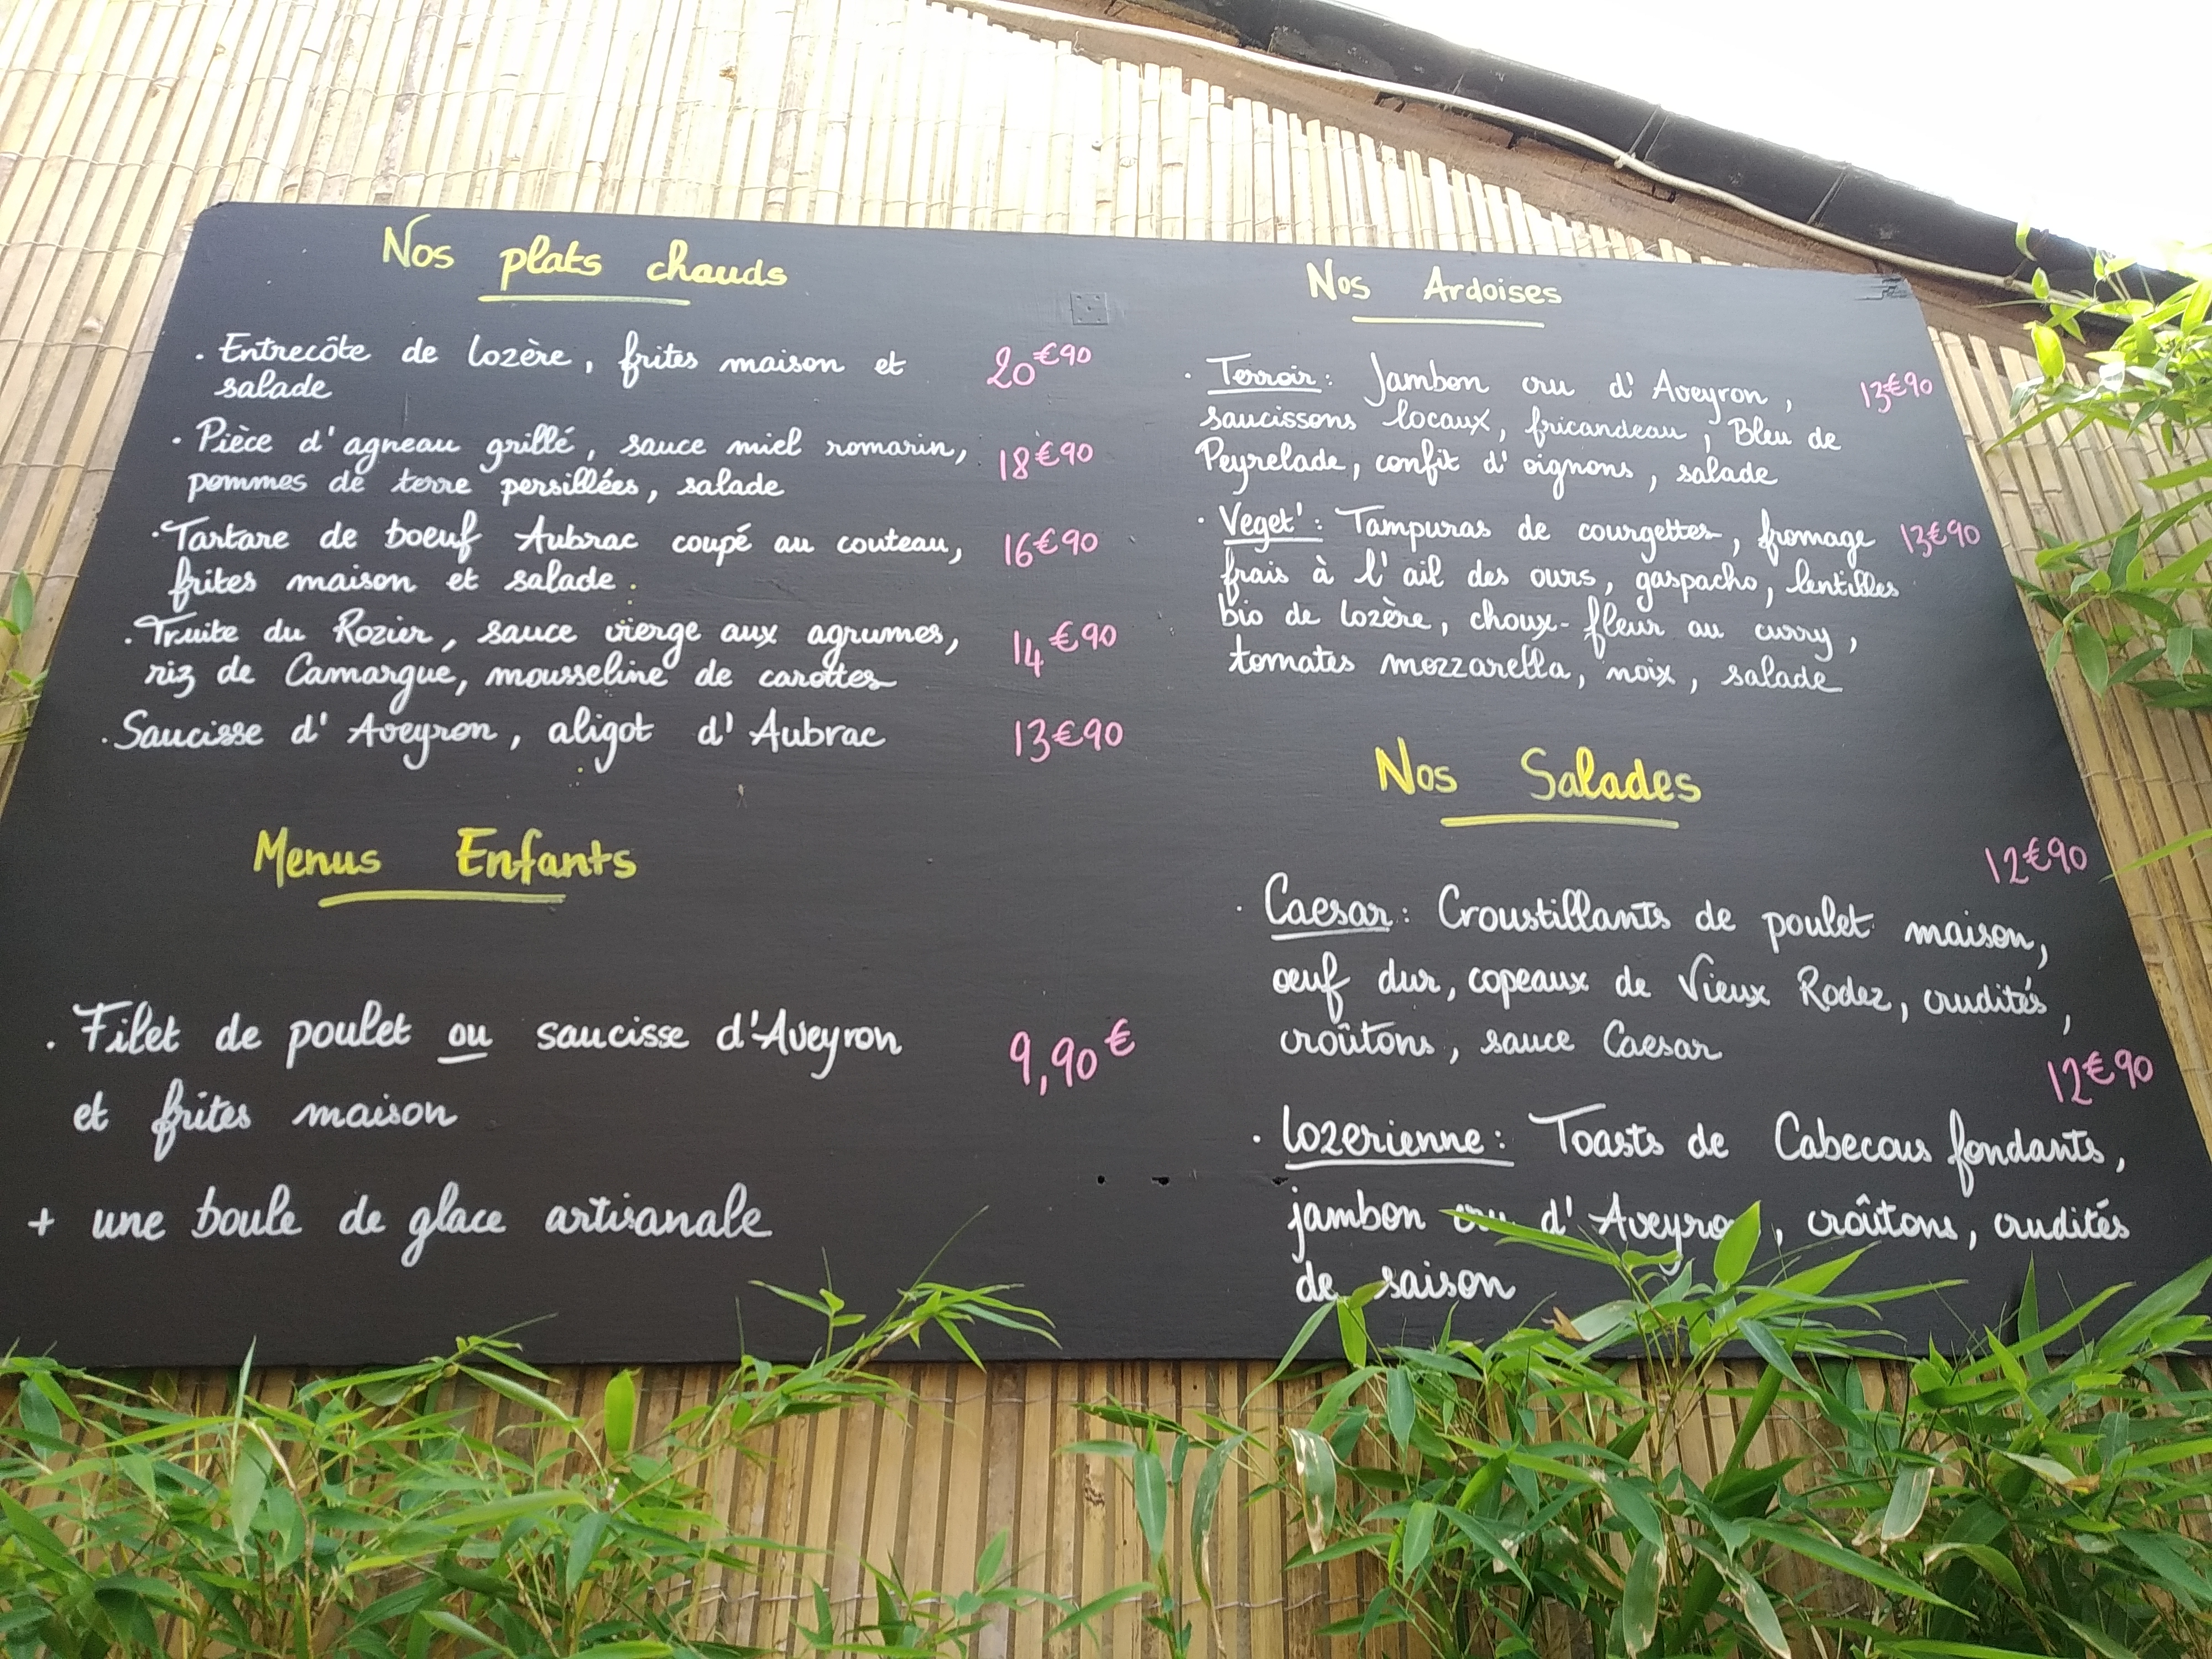 Nos plats chauds
. Entrecôte de Lozère, frites maison et 20€90
salade
. Pièce d'agneau grillé, sauce miel romarin, 18€90
pommes de terre persillées, salade
. Tartare de boeuf Aubrac coupé au couteau, 16€90
frites maison et salade.
. Truite du Rozier, sauce vierge aux agrumes, 14€90
riz de Camargue, mousseline de carottes
. Saucisse d'Aveyron, aligot d'Aubrac 13€90
Menus Enfants
. Filet de poulet ou saucisse d'Aveyron 9,90€
et frites maison
+ une boule de glace artisanale
Nos Ardoises
. Terroir: Jambon cru d'Aveyron, 13€90
saucissons locaux, fricandeau, Bleu de
Peyrelade, confit d'oignons, salade
. Veget': Tampuras de courgettes, fromage 13€90
frais à l'ail des ours, gaspacho, lentilles
bio de Lozère, choux-fleur au curry,
tomates mozzarella, noix, salade
Nos Salades
12€90
. Caesar: Croustillants de poulet maison,
œuf dur, copeaux de Vieux Rodez, crudités,
croûtons, sauce Caesar
12€90
. Lozerienne: Toasts de Cabecous fondants,
jambon cru d'Aveyron, croûtons, crudités
de saison